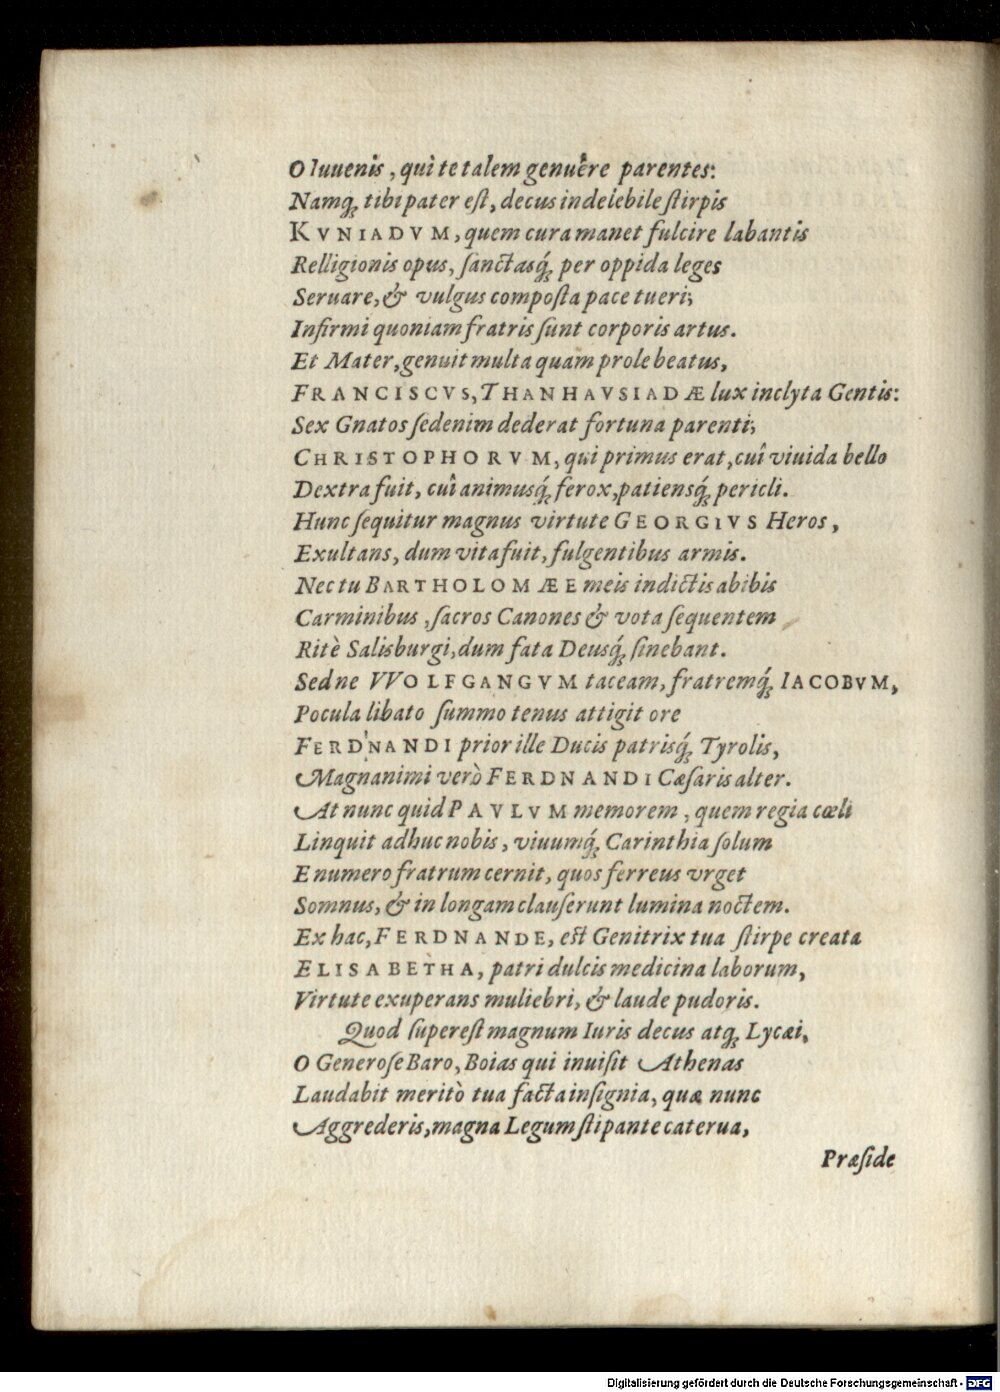 O Iuuenis, qui te talem genuêre parentes:
Namq́; tibi pater eſt, decus indelebile ſtirpis
KVNIADVM, quem cura manet fulcire labantis
Relligionis opus, ſanctasq́; per oppida leges
Seruare, & vulgus compoſta pace tueri;
Infirmi quoniam fratris ſunt corporis artus.
Et Mater, genuit multa quam prole beatus,
FRANCISCVS, THANHAVSIADÆ lux inclyta Gentis:
Sex Gnatos ſedenim dederat fortuna parenti;
CHRISTOPHORVM, qui primus erat, cuî viuida bello
Dextra fuit, cuî animusq́; ferox, patiensq́; pericli.
Hunc ſequitur magnus virtute GEORGIVS Heros,
Exultans, dum vita fuit, fulgentibus armis.
Nec tu BARTHOLOMÆE meis indictis abibis
Carminibus, ſacros Canones & vota ſequentem
Ritè Salisburgi, dum fata Deusq́; ſinebant.
Sed ne VVOLFGANGVM taceam, fratremq́; IACOBVM,
Pocula libato ſummo tenus attigit ore
FERD'NANDI prior ille Ducis patrisq́; Tyrolis,
Magnanimi verò FERDNANDI Cæſaris alter.
At nunc quid PAVLVM memorem, quem regia cœli
Linquit adhuc nobis, viuumq́; Carinthia ſolum
E numero fratrum cernit, quos ferreus vrget
Somnus, & in longam clauſerunt lumina noctem.
Ex hac, FERDNANDE, eſt Genitrix tua ſtirpe creata
ELISABETHA, patri dulcis medicina laborum,
Virtute exuperans muliebri, & laude pudoris.
Quod ſupereſt magnum Iuris decus atq; Lycæi,
O Generoſe Baro, Boias qui inuiſit Athenas
Laudabit meritò tua facta inſignia, quæ nunc
Aggrederis, magna Legum ſtipante caterua,
Præſide
Digitalisierung gefördert durch die Deutsche Forschungsgemeinschaft - DFG